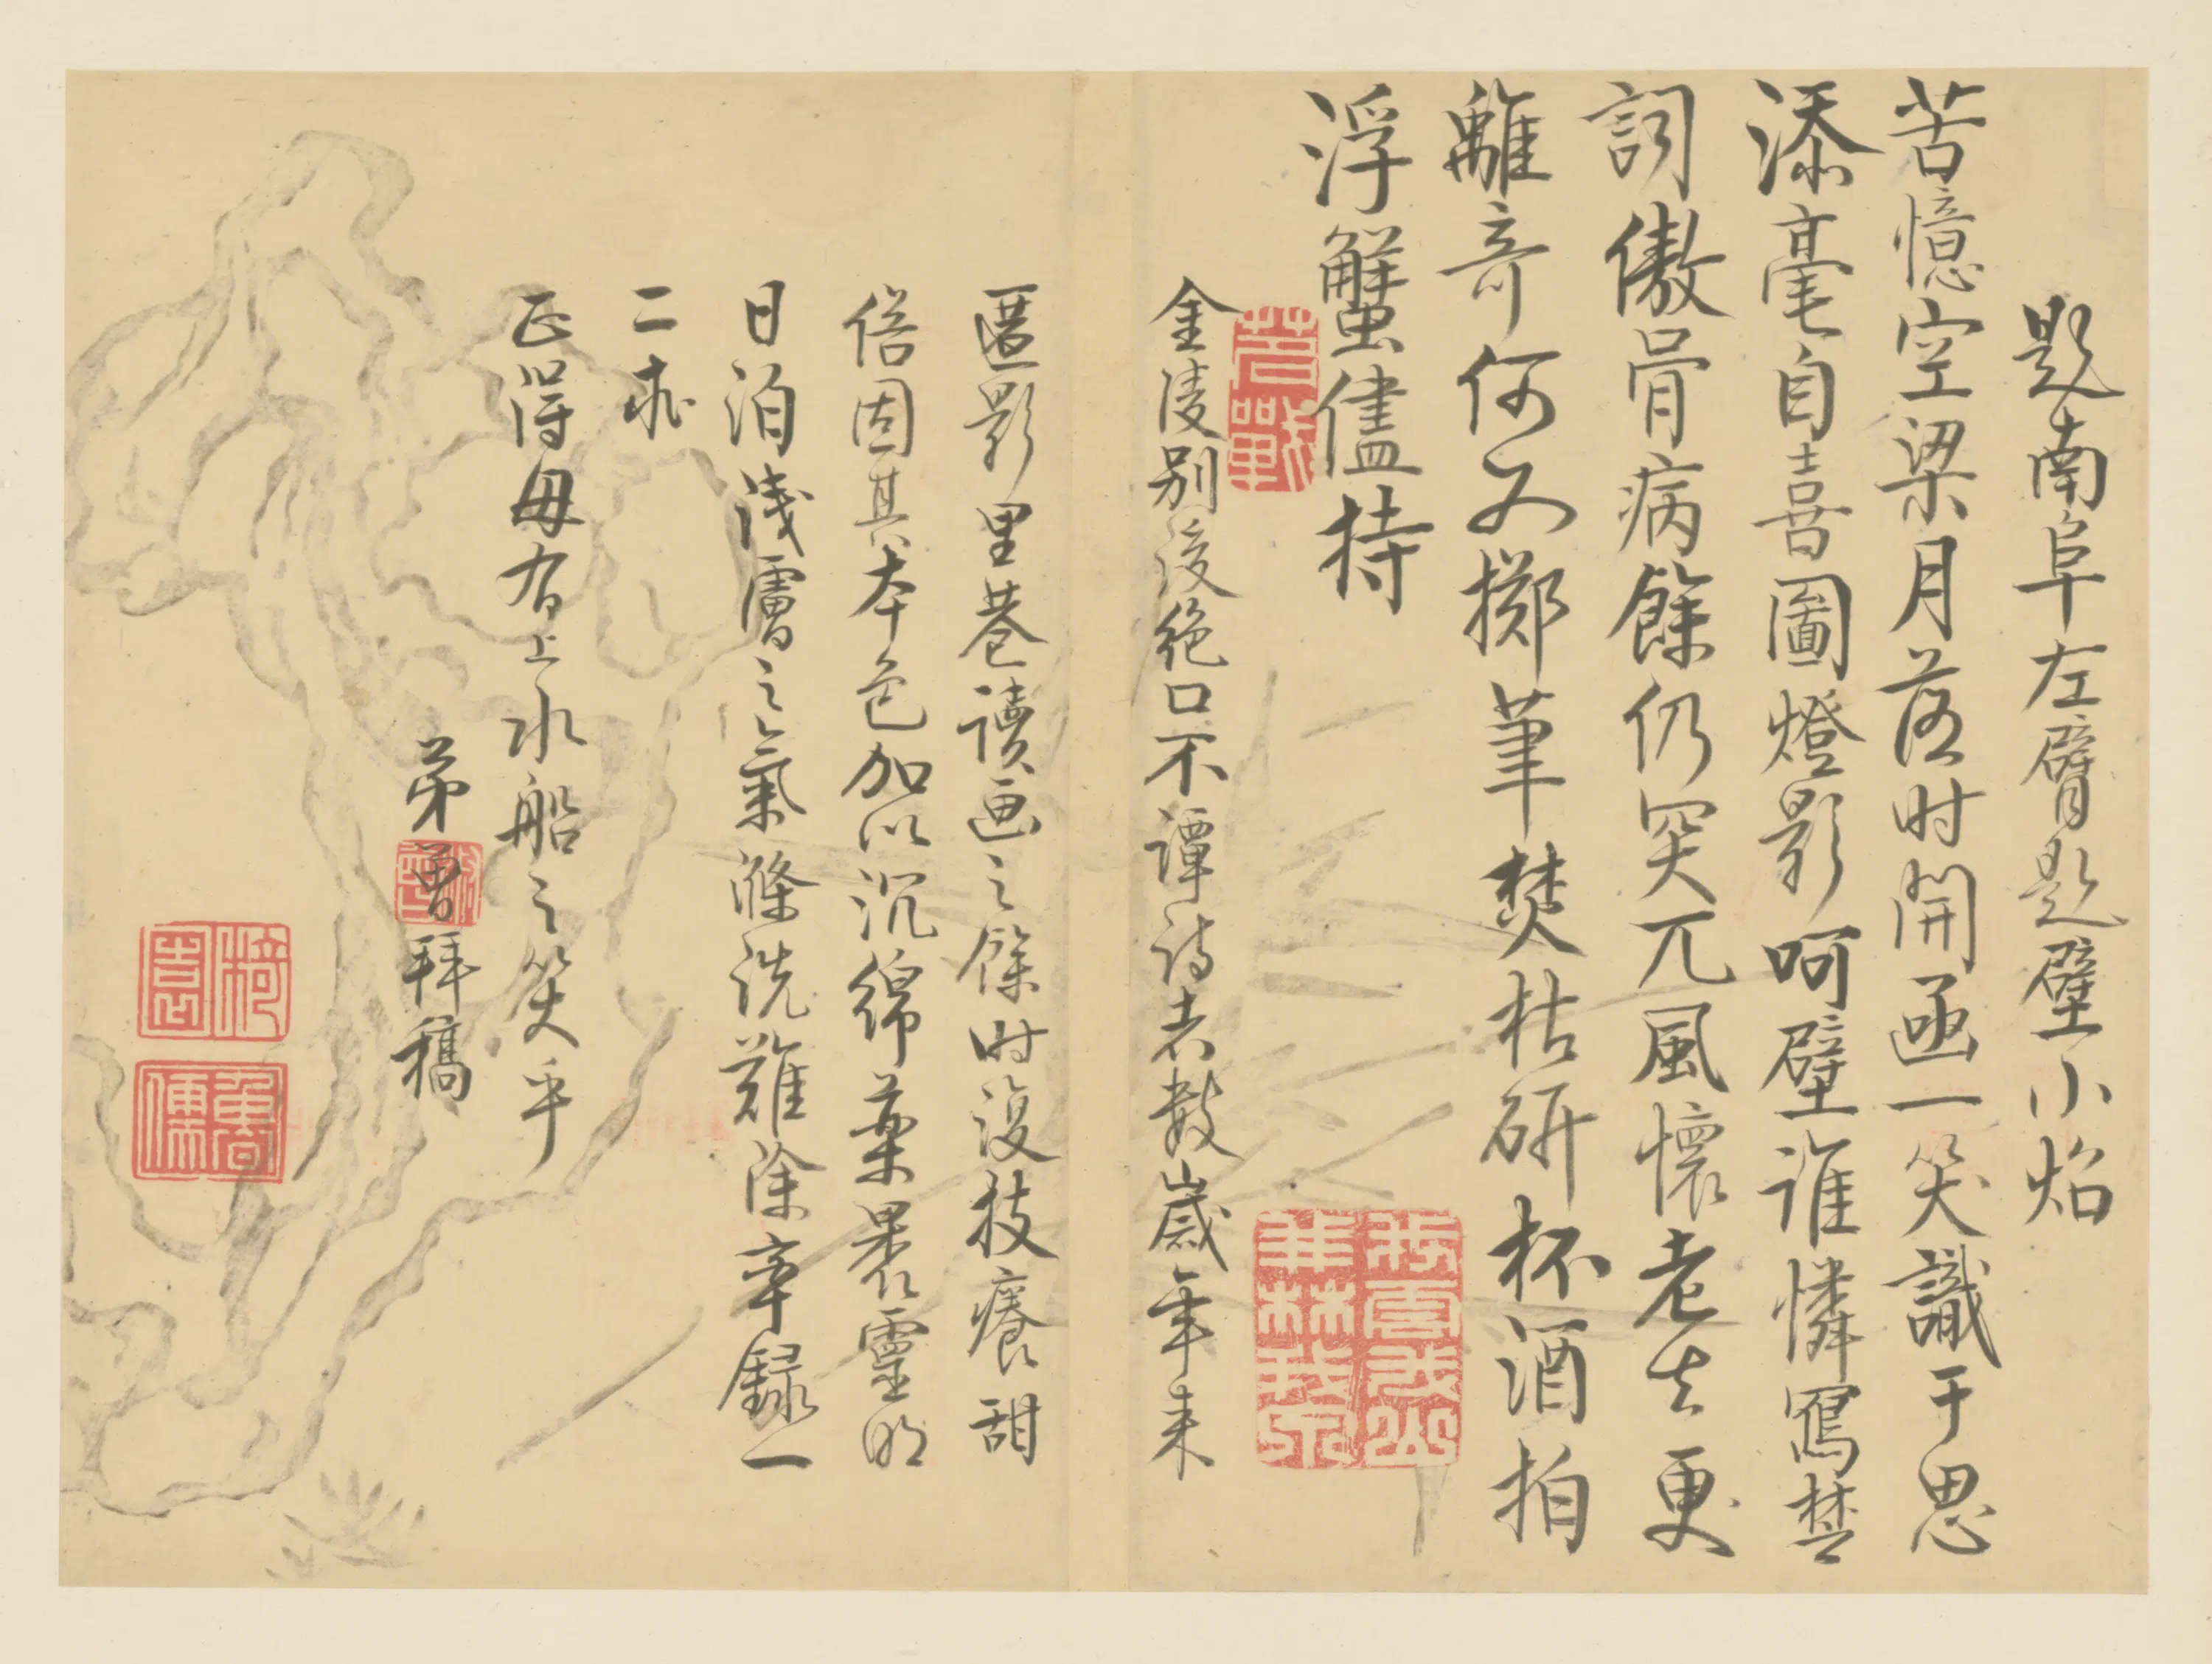 題南阜左臂題壁小炤
苦憶空梁月落时開函一笑識于思
添毫自喜圖燈影呵壁誰憐寫楚
詞傲骨病餘仍突兀風懷老去更
離奇何不擲筆焚枯研杯酒拍
浮蟹儘持
金陵别後绝口不譚诗者数歲年来
匿影里巷讀画之餘时復技癢甜
俗固其本色加以沉綿藥裹靈明
日汩淺露之氣滌洗難除辛録一
二求
正得毋有上水船之笑乎
弟曾拜稿